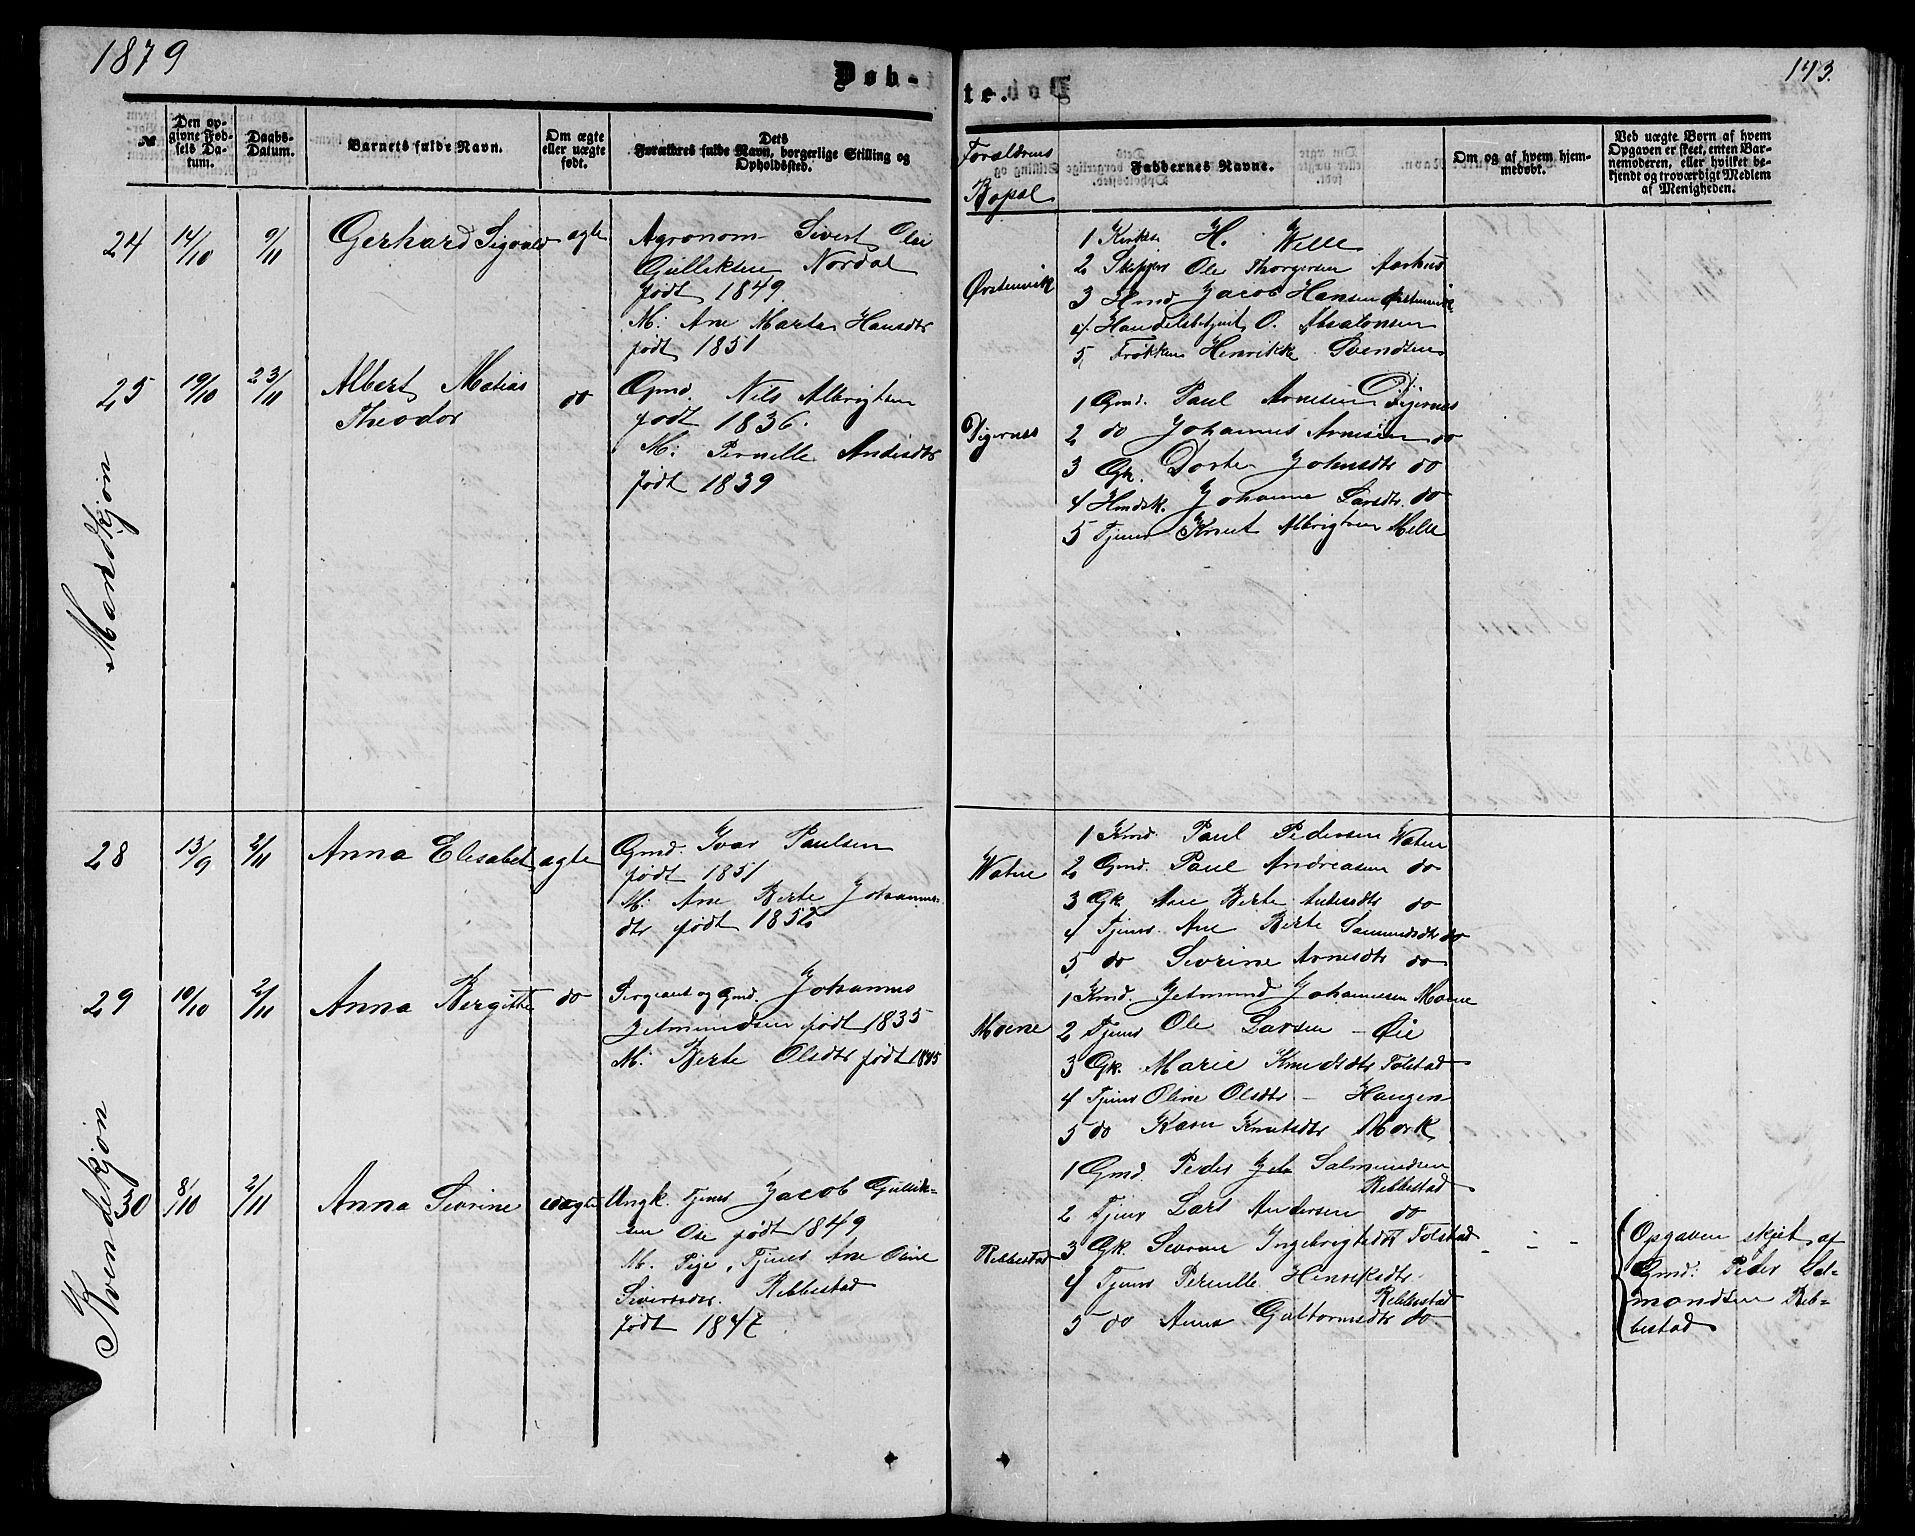 1879
143.
Døb-
te.
№
Den op-
givne Fød-
sels Da-
tum.
Daabs-
Datum.
Barnets fulde Navn.
Om ægte
eller uægte
født.
Dets
Forældres fulde Navn, borgerlige Stilling og
Opholdssted.
Forældrenes
Bopæl
Faddernes Navne.
Om og af hvem hjem-
medøbt.
Ved uægte Børn af hvem
Opgaven er skeet, enten Bar-
nemoderen, eller hvilket be-
kjendt og troværdigt Medlem
af Menigheden.
Mandkjøn
24 14/10 9/11 Gerhard Sigvald ægte
Agronom Sivert Olai
Gulliksen Nordal
født 1849
M: Ane Marta Hansdtr
født 1851
Ørstenvik
1 H. Wille
2 Skipper Ole Thorgersen Aarhus
3 Hmd Jacob Hansen Ørstenvik
4 Handelsbetjent O. Absalonsen
5 Frøken Henrikke Svendsen
25 19/10 23/11 Albert Matias
Theodor do
Gmd. Nils Albrigtsen
født 1836.
M: Pernille Andersdtr
født 1839
Digernes
1 Gmd. Paul Arnesen Digernes
2 do Johannes Arnesen do
3 Gk. Dorte Johnsdtr do
4 Hmdsk. Johanne Larsdtr. do
5 Tjener Knut Albrigtsen Melle
Kvindekjøn
28 13/9 2/11 Anna Elisabet ægte
Gmd. Ivar Paulsen
født 1851
M: Ane Berte Johannes-
dtr født 1852
Watne
1 Kmd. Paul Pedersen Watne
2 Gmd. Paul Andreasen do
3 Gk. Ane Berte Andersdtr do
4 Tjener Ane Berte Samundsdtr do
5 do Sevrine Arnesdtr do
29 10/10 2/11 Anna Bergitte do
Sergeant og Gmd. Johannes
Jetmundsen født 1835
M: Berte Olsdtr født 1845
Moene
1 Kmd. Jetmund Johannesen Moene
2 Tjener Ole Larsen - Øie
3 Gk. Marie Knudsdtr Folstad
4 Tjener Oline Olsdtr - Haugen
5 do Karen Knutsdtr Mork
30 8/10 2/11 Anna Sevrine uægte
Ungk. Tjener Jacob Gullik-
sen Ose født 1849
M. Pige, Tjener Ane Oline
Sivertsdtr. Rebbestad
født 1847
Rebbestad
1 Gmd. Peder Salmundsen
Rebbestad
2 Tjener Lars Andersen do
3 Gk. Sevrine Ingebrigtsdtr Folstad
4 Tjener Pernille Henriksdtr
Rebbestad
5 do Anna Guttormsdtr do
- - -
Opgaven skjet af
Gmd: Peder Sal-
mondsen Reb-
bestad